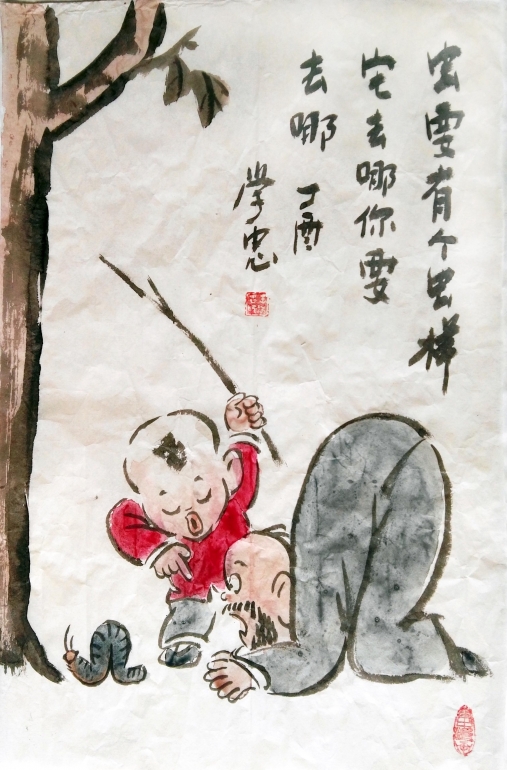 虫要有个虫样
它去哪你要
去哪 丁酉
学忠